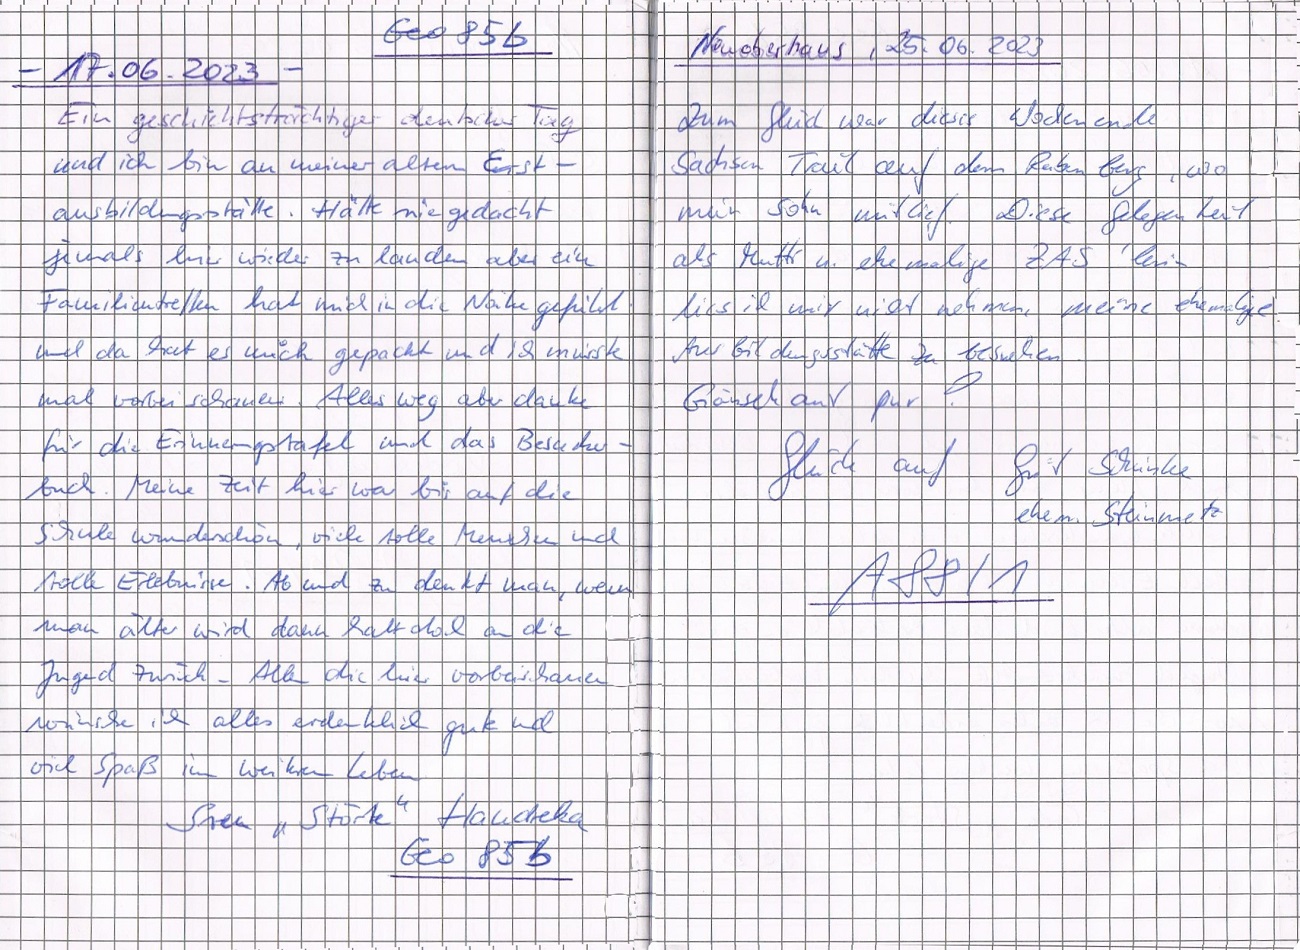 Geo 85b
- 17.06.2023 -
Ein geschichtsträchtiger deutscher Tag
und ich bin an meiner alten Erst-
ausbildungsstätte. Hätte nie gedacht
jemals hier wieder zu landen aber ein
Familientreffen hat mich in die Nähe geführt
und da hat es mich gepackt und ich musste
mal vorbei schauen. Alles weg aber danke
für die Erinnerungstafel und das Besucher-
buch. Meine Zeit hier war bis auf die
Schule wunderschön, viele tolle Menschen und
tolle Erlebnisse. Ab und zu denkt man, wenn
man älter wird dann halt doch an die
Jugend zurück - Allen die hier vorbeischauen
wünsche ich alles erdenklich gute und
viel Spaß im weiteren Leben
Sven „Störte“
Geo 85b
Neuoberhaus, 25.06.2023
Zum Glück war dieses Wochenende
Sachsen Trail auf dem Raben berg, wo
mein Sohn mitlief. Diese Gelegenheit
als Mutti u. ehemalige ZAS'lerin
lies ich mir nicht nehmen, meine ehemalige
Ausbildungsstätte zu besuchen
Gänsehaut pur
Glück auf
ehem. Steinmetz
A88/1